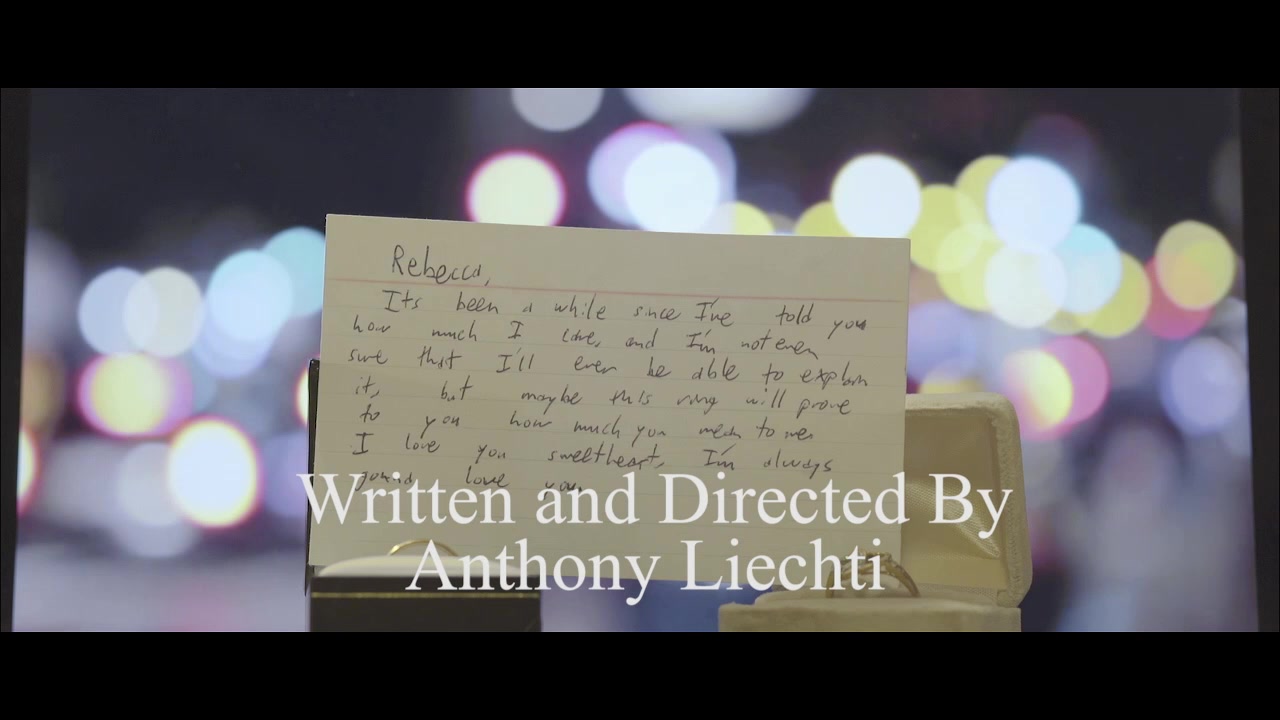 Rebecca,
Its been a while since I've told you
how much I love, and I'm not even
sure that I'll ever be able to explain
it, but maybe this ring will prove
to you how much you mean to me.
I love you sweetheart, I'm always
gonna love you.
Written and Directed By
Anthony Liechti